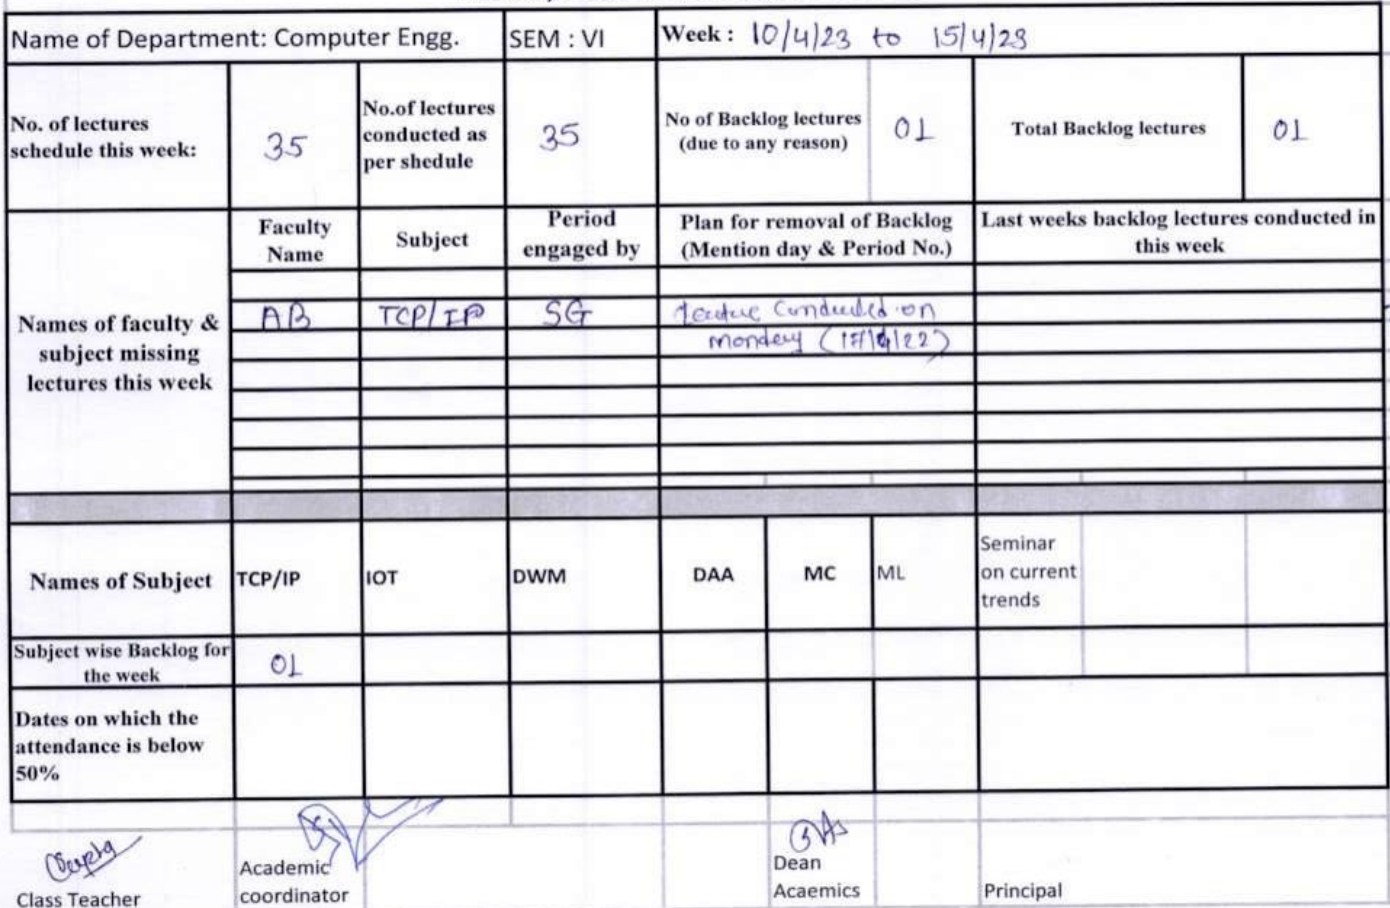 Name of Department: Computer Engg. SEM : VI Week : 10/4/23 to 15/4/23
No. of lectures schedule this week: 35 No.of lectures conducted as per shedule 35 No of Backlog lectures (due to any reason) 01 Total Backlog lectures 01
Names of faculty & subject missing lectures this week
Faculty Name Subject Period engaged by Plan for removal of Backlog (Mention day & Period No.) Last weeks backlog lectures conducted in this week
AB TCP/IP SG conducted on
monday
Names of Subject TCP/IP IOT DWM DAA MC ML Seminar on current trends
Subject wise Backlog for the week 01
Dates on which the attendance is below 50%
Class Teacher
Academic coordinator
Dean Acaemics
Principal